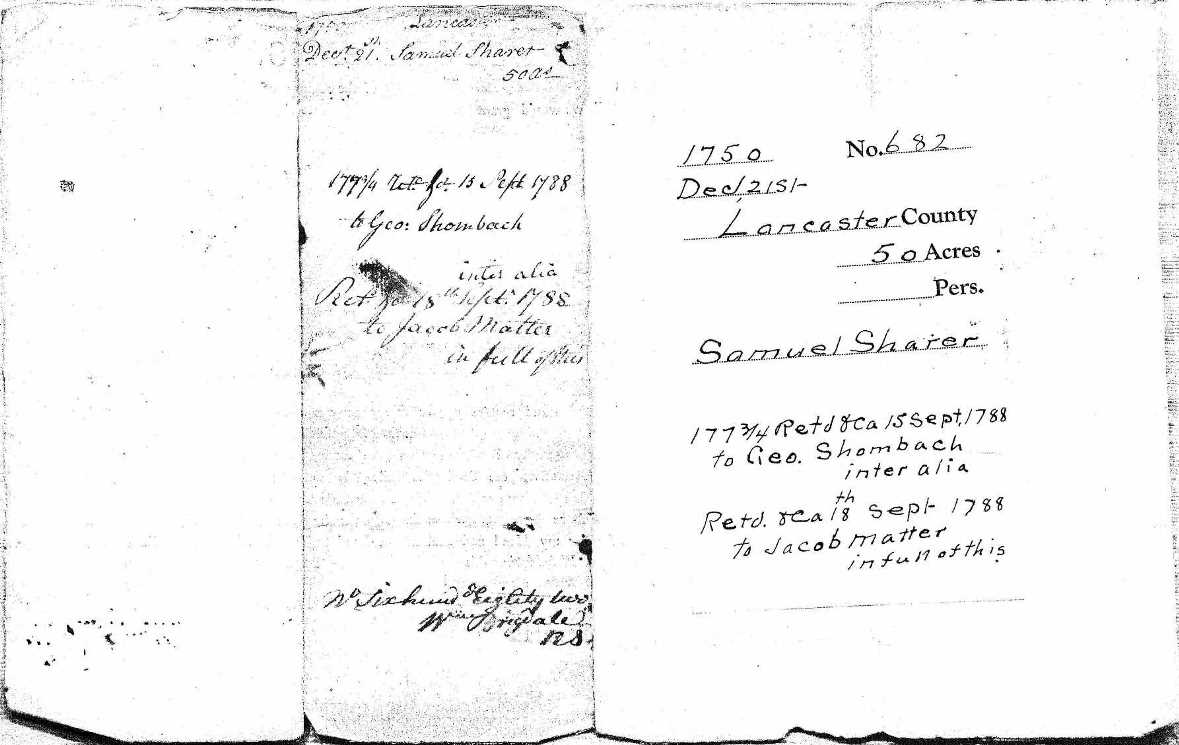 1750 Lancaster
Decr. 21st. Samuel Sharer
50 as
177 3/4 Retd. &ca. 15 Sept. 1788
to Geo: Shombach
inter alia
Retd &ca 18th Sept. 1788
to Jacob Matter
in full of this
No. Six hund & Eighty two
1750 No. 682
Dec., 21st
Lancaster County
50 Acres
Pers.
Samuel Sharer
177 3/4 Retd &ca 15 Sept. 1788
to Geo. Shombach
inter alia
Retd. &ca 18th Sept 1788
to Jacob Matter
in full of this